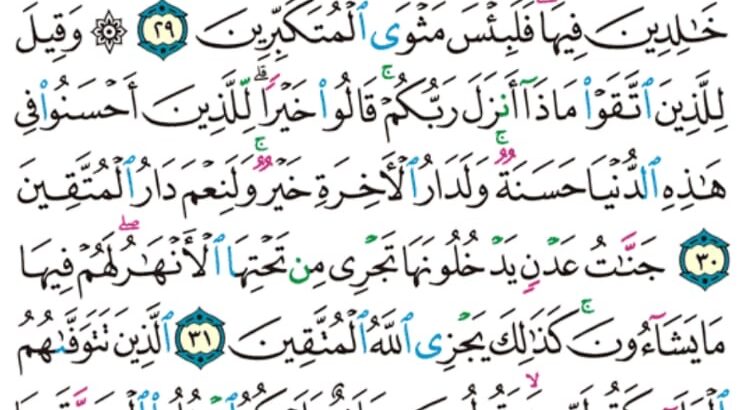 خَٰلِدِينَ فِيهَاۖ فَلَبِئۡسَ مَثۡوَى ٱلۡمُتَكَبِّرِينَ ٢٩ ۞ وَقِيلَ
لِلَّذِينَ ٱتَّقَوۡاْ مَاذَآ أَنزَلَ رَبُّكُمۡۚ قَالُواْ خَيۡرٗاۗ لِّلَّذِينَ أَحۡسَنُواْ فِي
هَٰذِهِ ٱلدُّنۡيَا حَسَنَةٞۚ وَلَدَارُ ٱلۡأٓخِرَةِ خَيۡرٞۚ وَلَنِعۡمَ دَارُ ٱلۡمُتَّقِينَ
٣٠ جَنَّٰتُ عَدۡنٖ يَدۡخُلُونَهَا تَجۡرِي مِن تَحۡتِهَا ٱلۡأَنۡهَٰرُۖ لَهُمۡ فِيهَا
مَا يَشَآءُونَۚ كَذَٰلِكَ يَجۡزِي ٱللَّهُ ٱلۡمُتَّقِينَ ٣١ ٱلَّذِينَ تَتَوَفَّىٰهُمُ